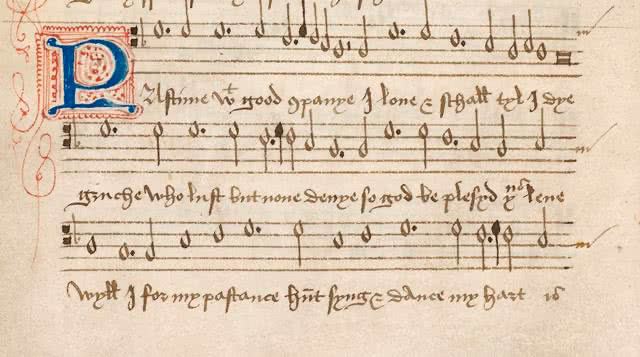 PAstime wt good 9panye I loue & schall tyl I dye
gruche who lust but none denye so god be plesyd yus leue
wyll I for my pastance hunt syng & dance my hart is